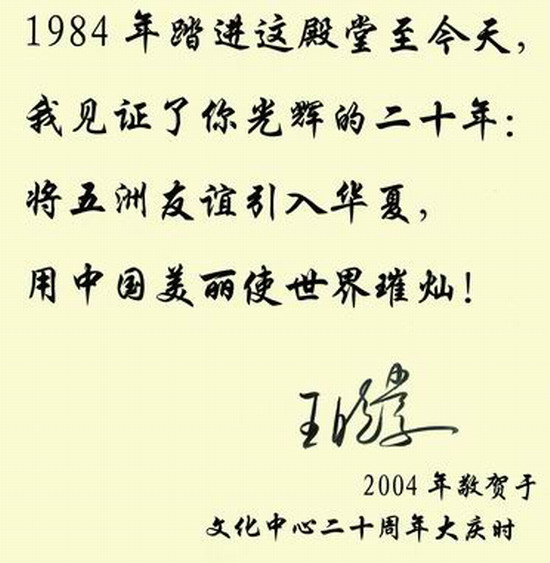 1984年踏进这殿堂至今天，
我见证了你光辉的二十年：
将五洲友谊引入华夏，
用中国美丽使世界璀灿！
2004年敬贺于
文化中心二十周年大庆时